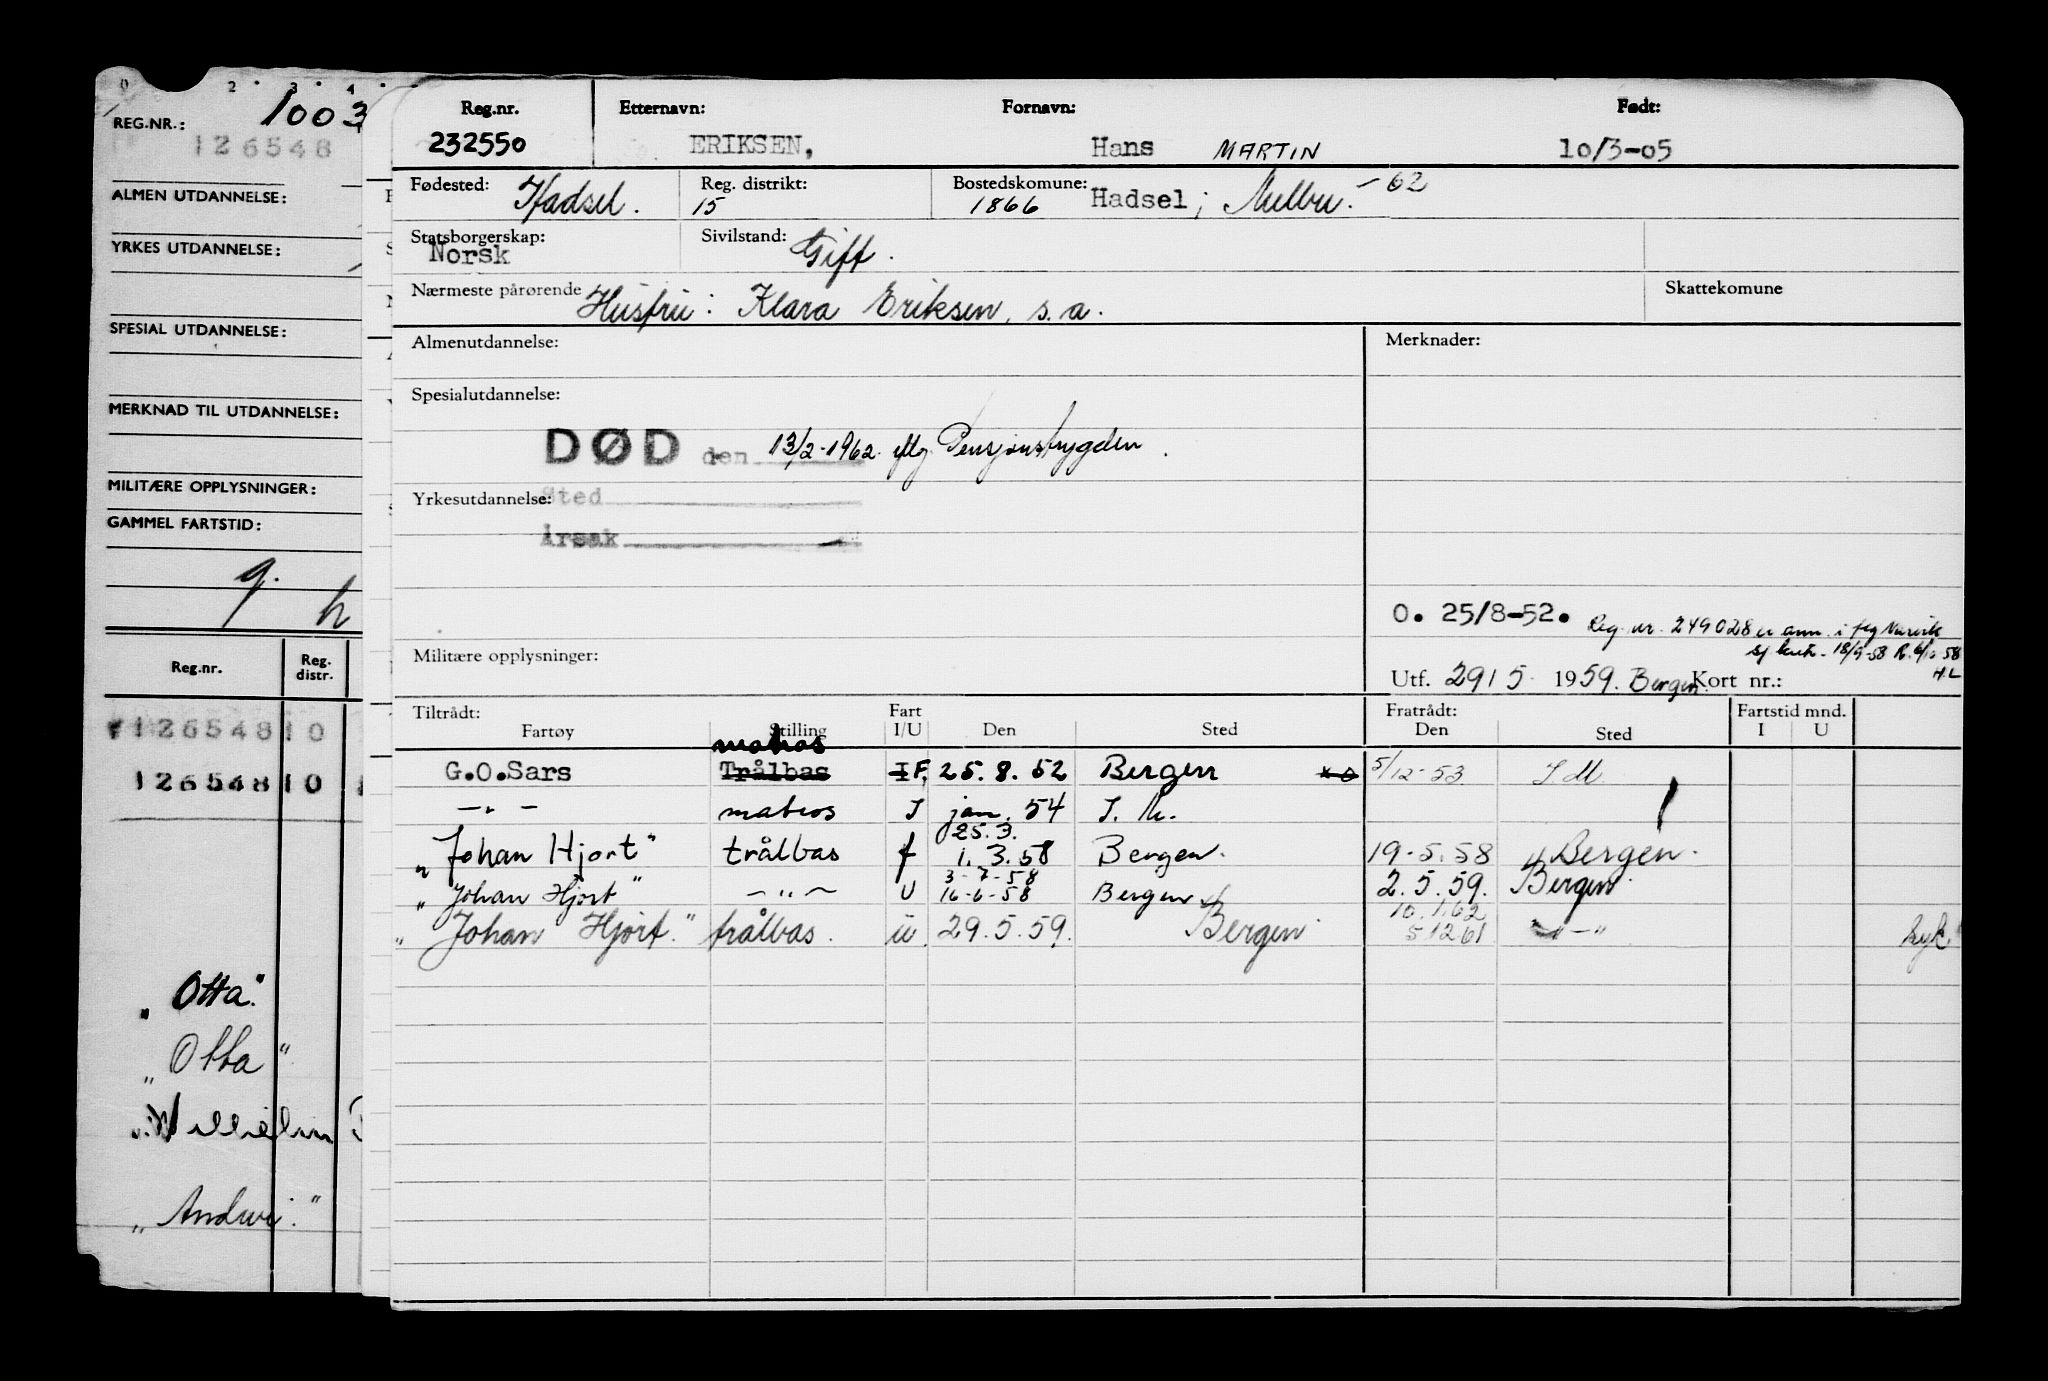 0 2 3 4
REG.NR.: 1003
126548
ALMEN UTDANNELSE:
YRKES UTDANNELSE:
SPESIAL UTDANNELSE:
MERKNAD TIL UTDANNELSE:
MILITÆRE OPPLYSNINGER:
GAMMEL FARTSTID:
Reg.nr. Reg. distr.
126548 10
126548 10
"Otta"
"Otta"
Reg.nr. Etternavn: Fornavn: Født:
232550 ERIKSEN, Hans MARTIN 10/3-05
Fødested: Hadsel. Reg. distrikt: 15 Bostedskomune: 1866 Hadsel; Melbu. -62
Statsborgerskap: Norsk Sivilstand: Gift.
Nærmeste pårørende Hustru: Klara Eriksen, s.a. Skattekomune
Almenutdannelse: Merknader:
Spesialutdannelse:
DØD den 13/2-1962. iflg. Pensjonstrygden.
Yrkesutdannelse: Sted
Årsak
O. 25/8-52. Reg. nr. 249028 er ann. i flg Narvik
sj. 18/9-58 58
H.L
Militære opplysninger: Utf. 29/5 1959. Bergen. Kort nr.:
Tiltrådt: Fart Fratrådt: Fartstid mnd.
Fartøy Stilling I/U Den Sted Den Sted I U
matros
G.O.Sars Trålbas I F, 25.8.52 Bergen 5/12-53 I.M.
-"- matros I jan. 54 I.M.
25.3.
"Johan Hjort" trålbas f 1.3.58 Bergen. 19-5.58 Bergen.
3-7-58
"Johan Hjort" -"- U 16-6-58 Bergen 2.5.59. Bergen.
10.1.62
"Johan Hjort." trålbas. u. 29.5.59. Bergen 5.12.61 -"- syk.